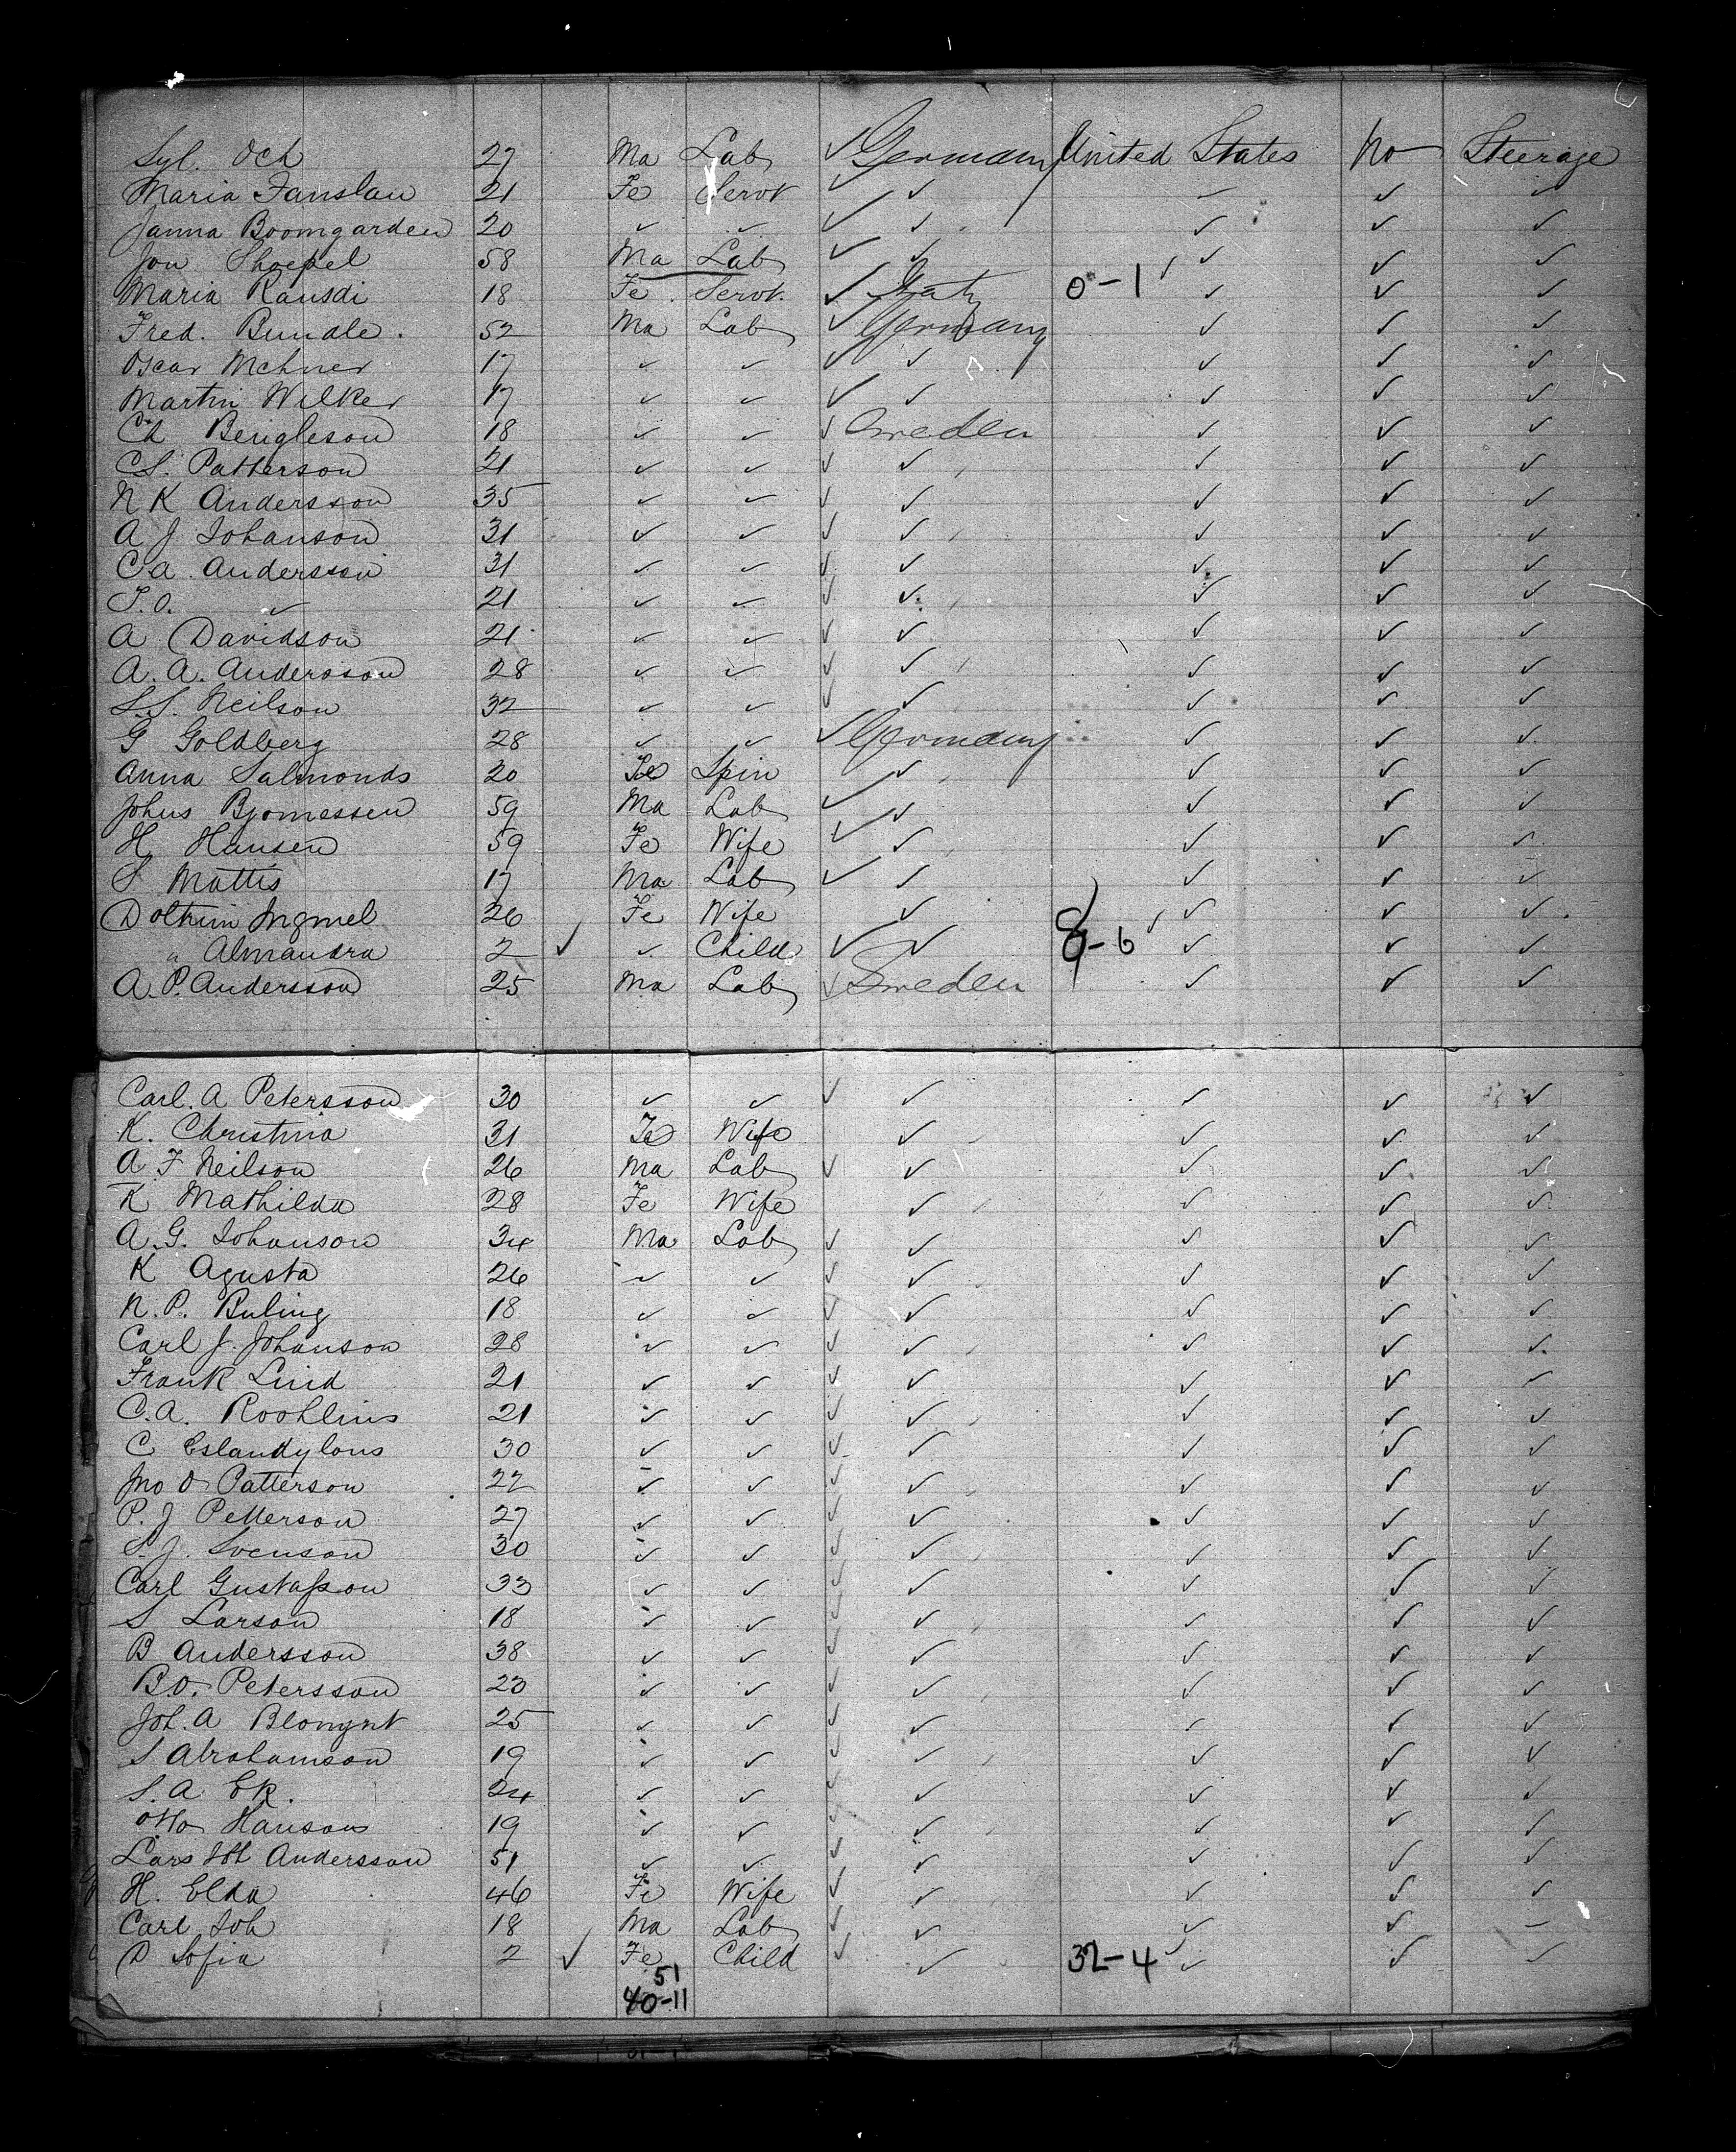 Syl. Och 27 Ma Lab ✓ Germany United States No Steerage
Maria Fanslau 21 Fe Servt ✓ ✓ ✓ ✓ ✓
Janna Boomgarden 20 ✓ ✓ ✓ ✓ ✓ ✓ ✓
Jon Shoepel 58 Ma Lab ✓ ✓ ✓ ✓ ✓
Maria Ransdi 18 Fe Servt. ✓ Italy 0-1 ✓ ✓ ✓ ✓
Fred. Bundle. 52 Ma Lab ✓ Germany ✓ ✓ ✓
Oscar Mehner 17 ✓ ✓ ✓ ✓ ✓ ✓ ✓
Martin Wilker 17 ✓ ✓ ✓ ✓ ✓ ✓ ✓
Ch Bengleson 18 ✓ ✓ ✓ Sweden ✓ ✓ ✓
C S. Patterson 21 ✓ ✓ ✓ ✓ ✓ ✓ ✓
N K Andersson 35 ✓ ✓ ✓ ✓ ✓ ✓ ✓
A J Johanson 31 ✓ ✓ ✓ ✓ ✓ ✓ ✓
C a. Andersson 31 ✓ ✓ ✓ ✓ ✓ ✓ ✓
T. O. ✓ 21 ✓ ✓ ✓ ✓ ✓ ✓ ✓
A Davidson 21 ✓ ✓ ✓ ✓ ✓ ✓ ✓
A. A. Andersson 28 ✓ ✓ ✓ ✓ ✓ ✓ ✓
S. S. Neilson 32 ✓ ✓ ✓ ✓ ✓ ✓ ✓
G Goldberg 28 ✓ ✓ ✓ Germany ✓ ✓ ✓
Anna Salmonds 20 Fe Spin ✓ ✓ ✓ ✓
Johns Bjornessen 59 Ma Lab ✓ ✓ ✓ ✓ ✓
H Hansen 59 Fe Wife ✓ ✓ ✓ ✓ ✓
S Mattis 17 Ma Lab ✓ ✓ ✓ ✓ ✓
Doltrim Ingmel 26 Fe Wife ✓ ✓ ✓ ✓
" Almandra 2 ✓ ✓ Child ✓ ✓ 8-6 ✓ ✓ ✓ ✓
A. P. Andersson 25 Ma Lab ✓ Sweden ✓ ✓ ✓
Carl. A Petersson 30 ✓ ✓ ✓ ✓ ✓ ✓ ✓
K. Christina 31 Fe Wife ✓ ✓ ✓ ✓
A F Neilson 26 Ma Lab ✓ ✓ ✓ ✓ ✓
K Mathilda 28 Fe Wife ✓ ✓ ✓ ✓
A. G. Johanson 34 Ma Lab ✓ ✓ ✓ ✓ ✓
K Agusta 26 ✓ ✓ ✓ ✓ ✓ ✓ ✓
N. P. Buling 18 ✓ ✓ ✓ ✓ ✓ ✓ ✓
Carl J. Johanson 28 ✓ ✓ ✓ ✓ ✓ ✓ ✓
Frank Lind 21 ✓ ✓ ✓ ✓ ✓ ✓ ✓
C. A. Roohlins 21 ✓ ✓ ✓ ✓ ✓ ✓ ✓
C Eslandylons 30 ✓ ✓ ✓ ✓ ✓ ✓ ✓
Jno O Patterson 22 ✓ ✓ ✓ ✓ ✓ ✓ ✓
P. J Petterson 27 ✓ ✓ ✓ ✓ ✓ ✓ ✓
S. J. Svenson 30 ✓ ✓ ✓ ✓ ✓ ✓ ✓
Carl Gustafsson 33 ✓ ✓ ✓ ✓ ✓ ✓ ✓
S Larson 18 ✓ ✓ ✓ ✓ ✓ ✓ ✓
B Andersson 38 ✓ ✓ ✓ ✓ ✓ ✓ ✓
B. O. Petersson 23 ✓ ✓ ✓ ✓ ✓ ✓ ✓
Joh. A 25 ✓ ✓ ✓ ✓ ✓ ✓ ✓
S Abrahamson 19 ✓ ✓ ✓ ✓ ✓ ✓ ✓
S. A Ek. 24 ✓ ✓ ✓ ✓ ✓ ✓ ✓
Otto Hanson 19 ✓ ✓ ✓ ✓ ✓ ✓ ✓
Lars Joh Andersson 51 ✓ ✓ ✓ ✓ ✓ ✓ ✓
H. Elda 46 Fe Wife ✓ ✓ ✓ ✓ ✓
Carl Joh 18 Ma Lab ✓ ✓ ✓ ✓
D Sofia 2 ✓ Fe Child ✓ ✓ 32-4 ✓ ✓ ✓ ✓
51
40-11